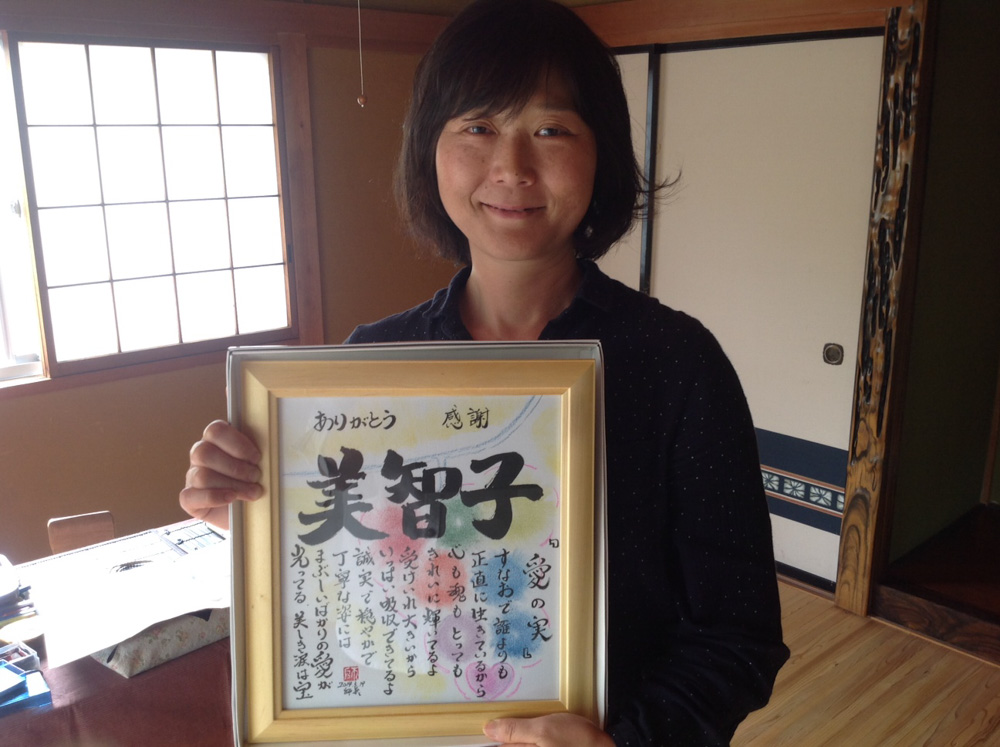 ありがとう 感謝
美智子
『愛の実』
すなおで誰よりも
正直に生きているから
心も魂も とっても
きれいに輝いてるよ
受けいれ大きいから
いっぱい吸収できてるよ
誠実で穏やかで
丁寧な姿には
まぶしいばかりの愛が
光ってる 美しき涙は宝